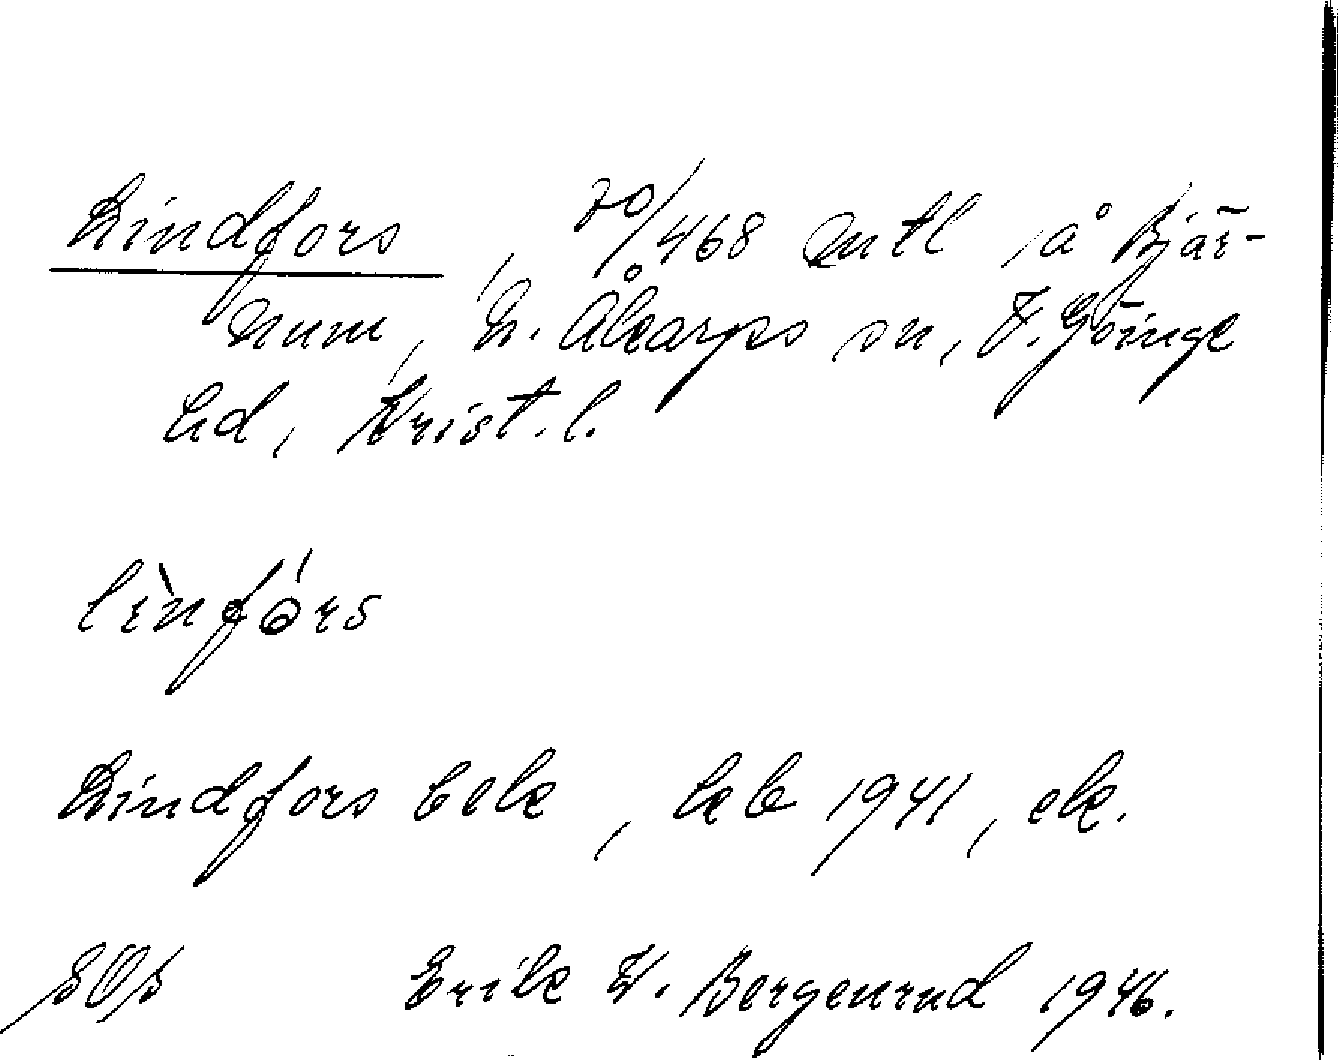 Lindfors, 20/468 mtl i å Bjär-
num, N. Åkarps sn, V. Göinge
hd, Krist. l.
lìnfórs
Lindfors belk, kb 1941, ek.
SOS Erik W. Bergenrud 1946.